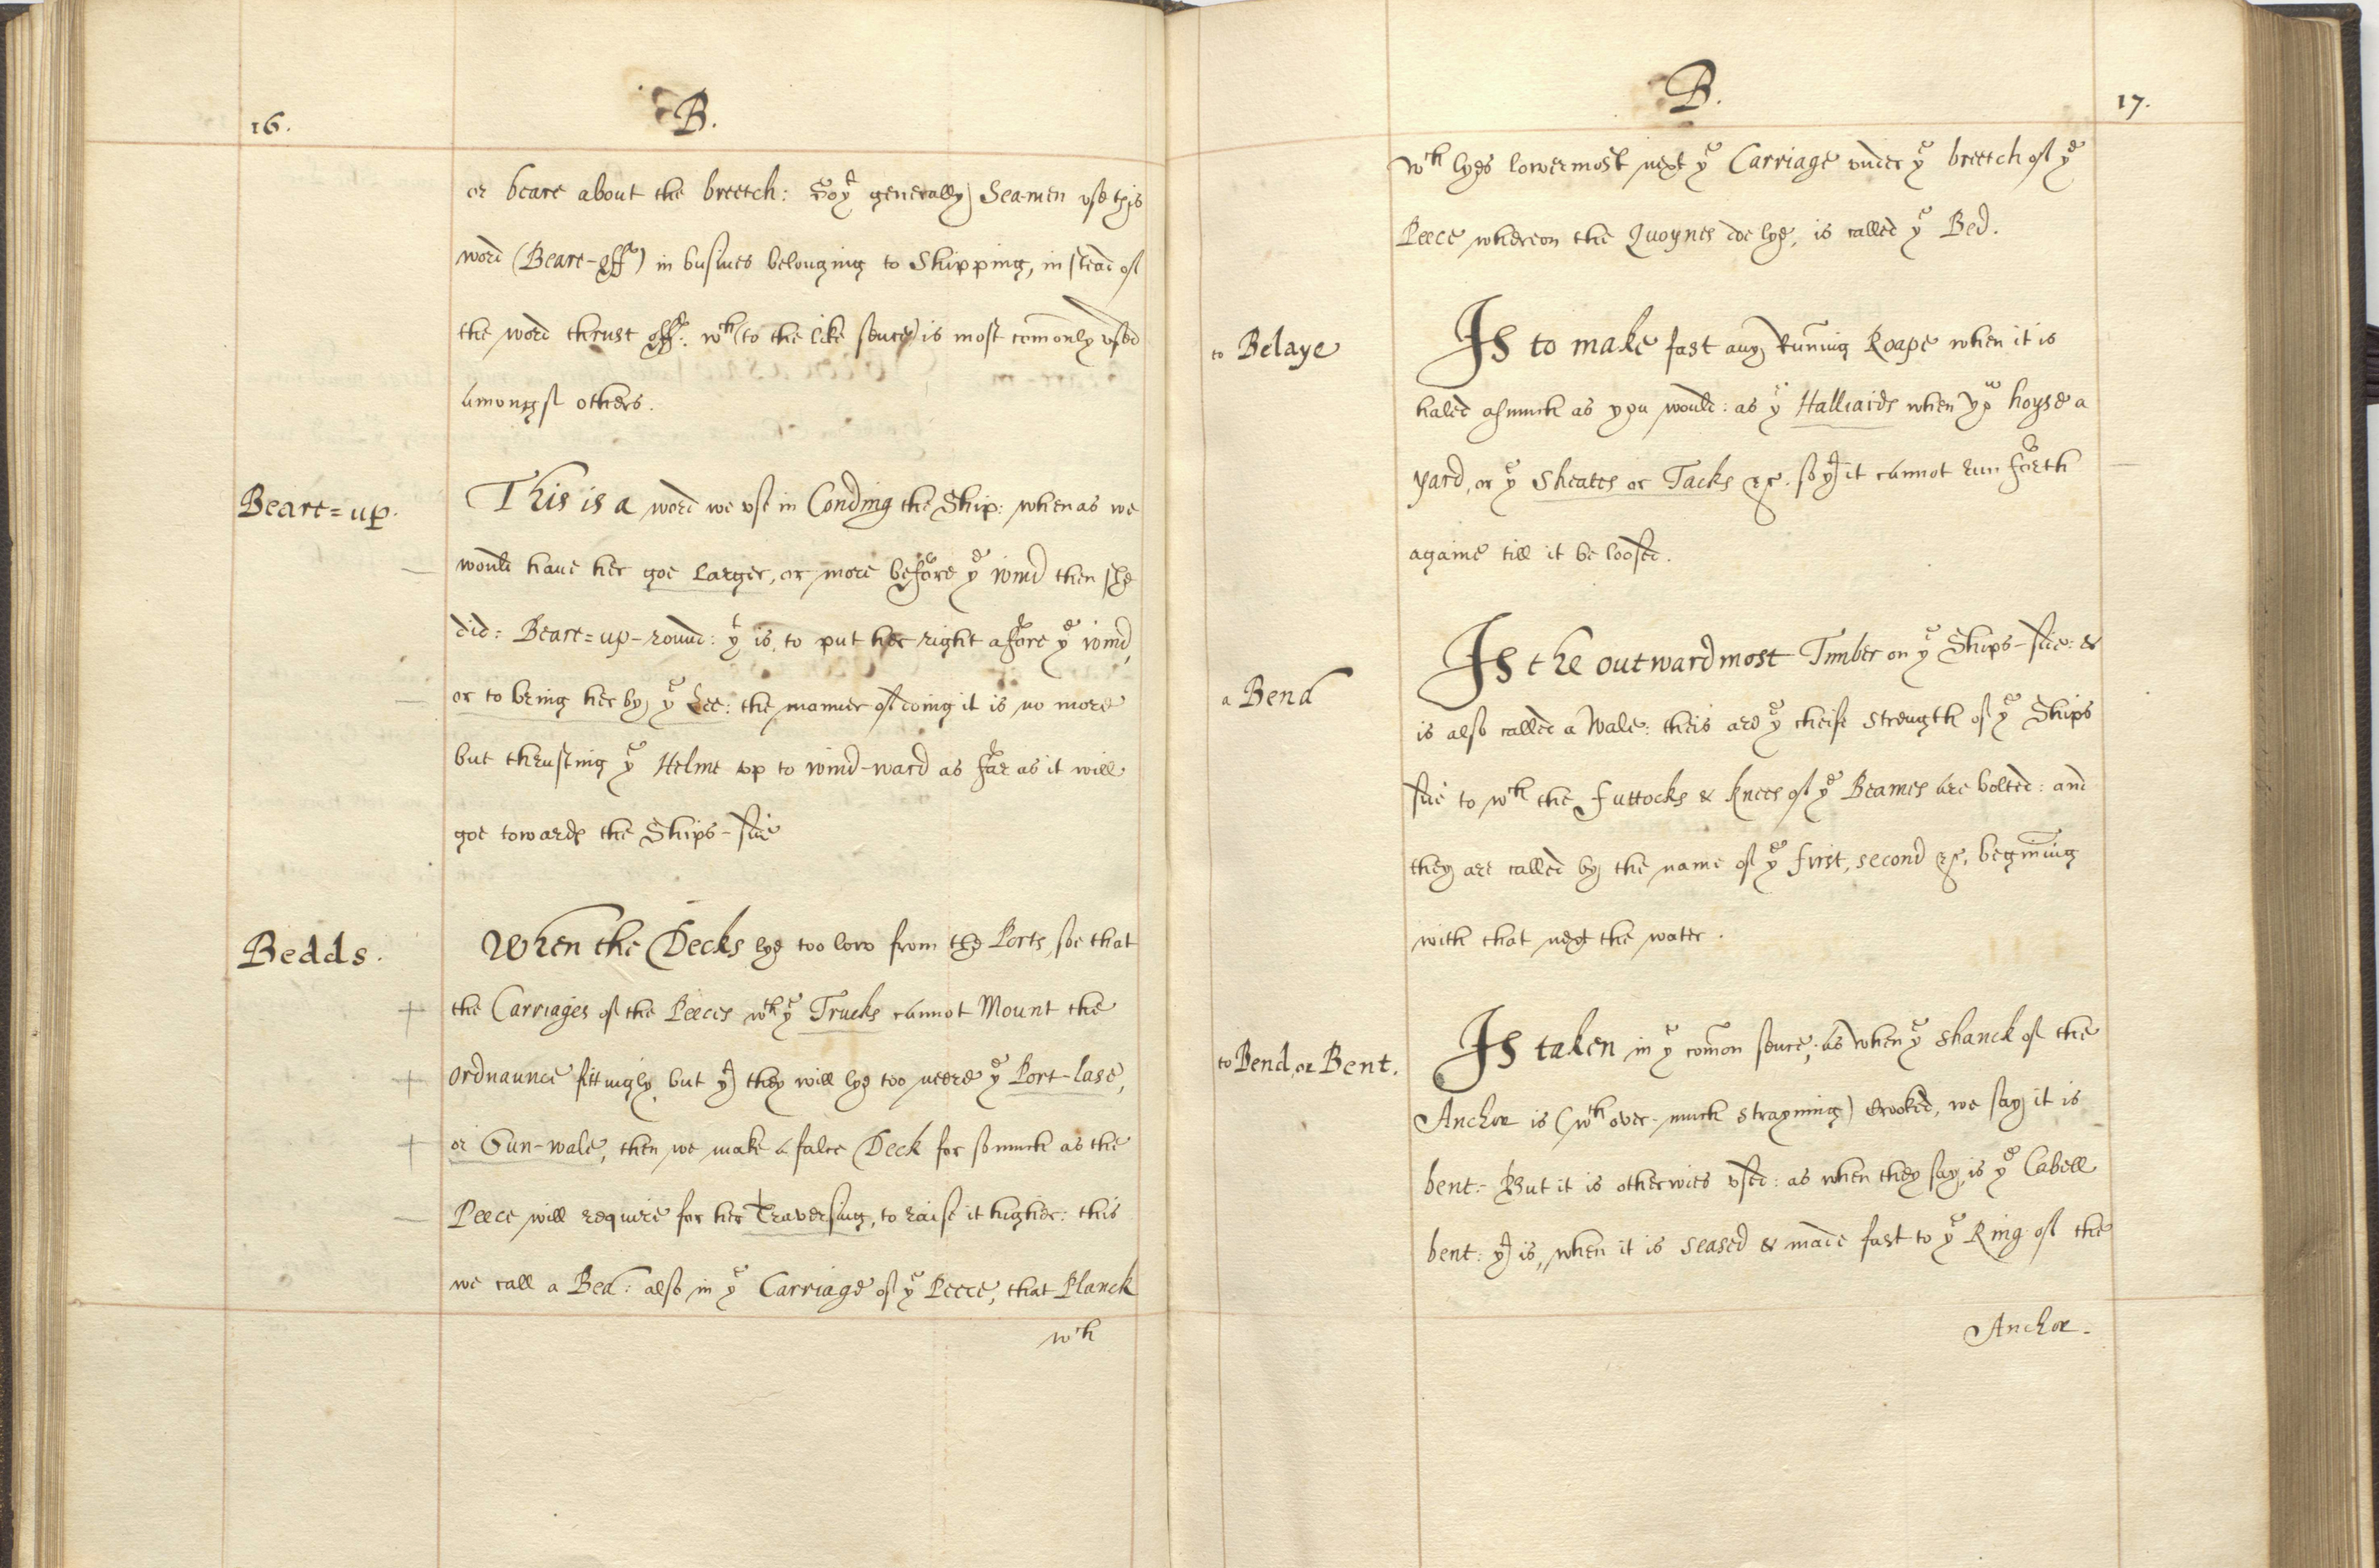 16.
B.
or beare about the breetch: So yt generally Seamen use this
word (Beare-off) in busines belonging to Shipping, in stead of
the word thrust off: wch (to the like sence) is most comonly used
amongst others.
Beare=up.
This is a word we use in Conding the Ship: when as we
would have her goe Larger, or more before ye wind then she
did: Beare=up-round: yt is, to put her right afore ye wind,
or to bring her by ye Lee: the manner of doing it is no more
but thrusting ye Helme up to wind-ward as far as it will
goe towards the Ships-side
Bedds.
When the Decks lye too low from the Ports, soe that
the Carriages of the Peeces wth ye Trucks cannot Mount the
Ordnaunce fittingly but yt they will lye too neere ye Port-lase,
or Gun-wale, then we make a false Deck for so much as the
Peece will require for her Traversing, to raise it higher: this
we call a Bed: also in ye Carriage of ye Peece, that Planck
wch
B.
17.
Wch lyes lowermost next ye Carriage under ye breetch of ye
Peece whereon the Quoynes doe lye, is called ye Bed.
to Belaye
Is to make fast any Runing Roape when it is
haled asmuch as you would: as ye Halliards when yo hoyse a
yard, or ye Sheates or Tacks &c. so yt it cannot run forth
againe till it be loosed.
a Bend
Is the outwardmost Timber on ye Ships-side: &
is also called a Wale: theis are ye cheife Strength of ye Ships
side to wch the futtocks & knees of ye Beames are bolted: and
they are called by the name of ye first, second &c, begining
with that next the water.
to Bend, or Bent.
Is taken in ye comon sence; as when ye shanck of the
Anchor is (wth over-much strayning) Crooked, we say it is
bent:- But it is otherwies used: as when they say, is ye Cabell
bent: yt is, when it is seased & made fast to ye Ring of the
Anchor.